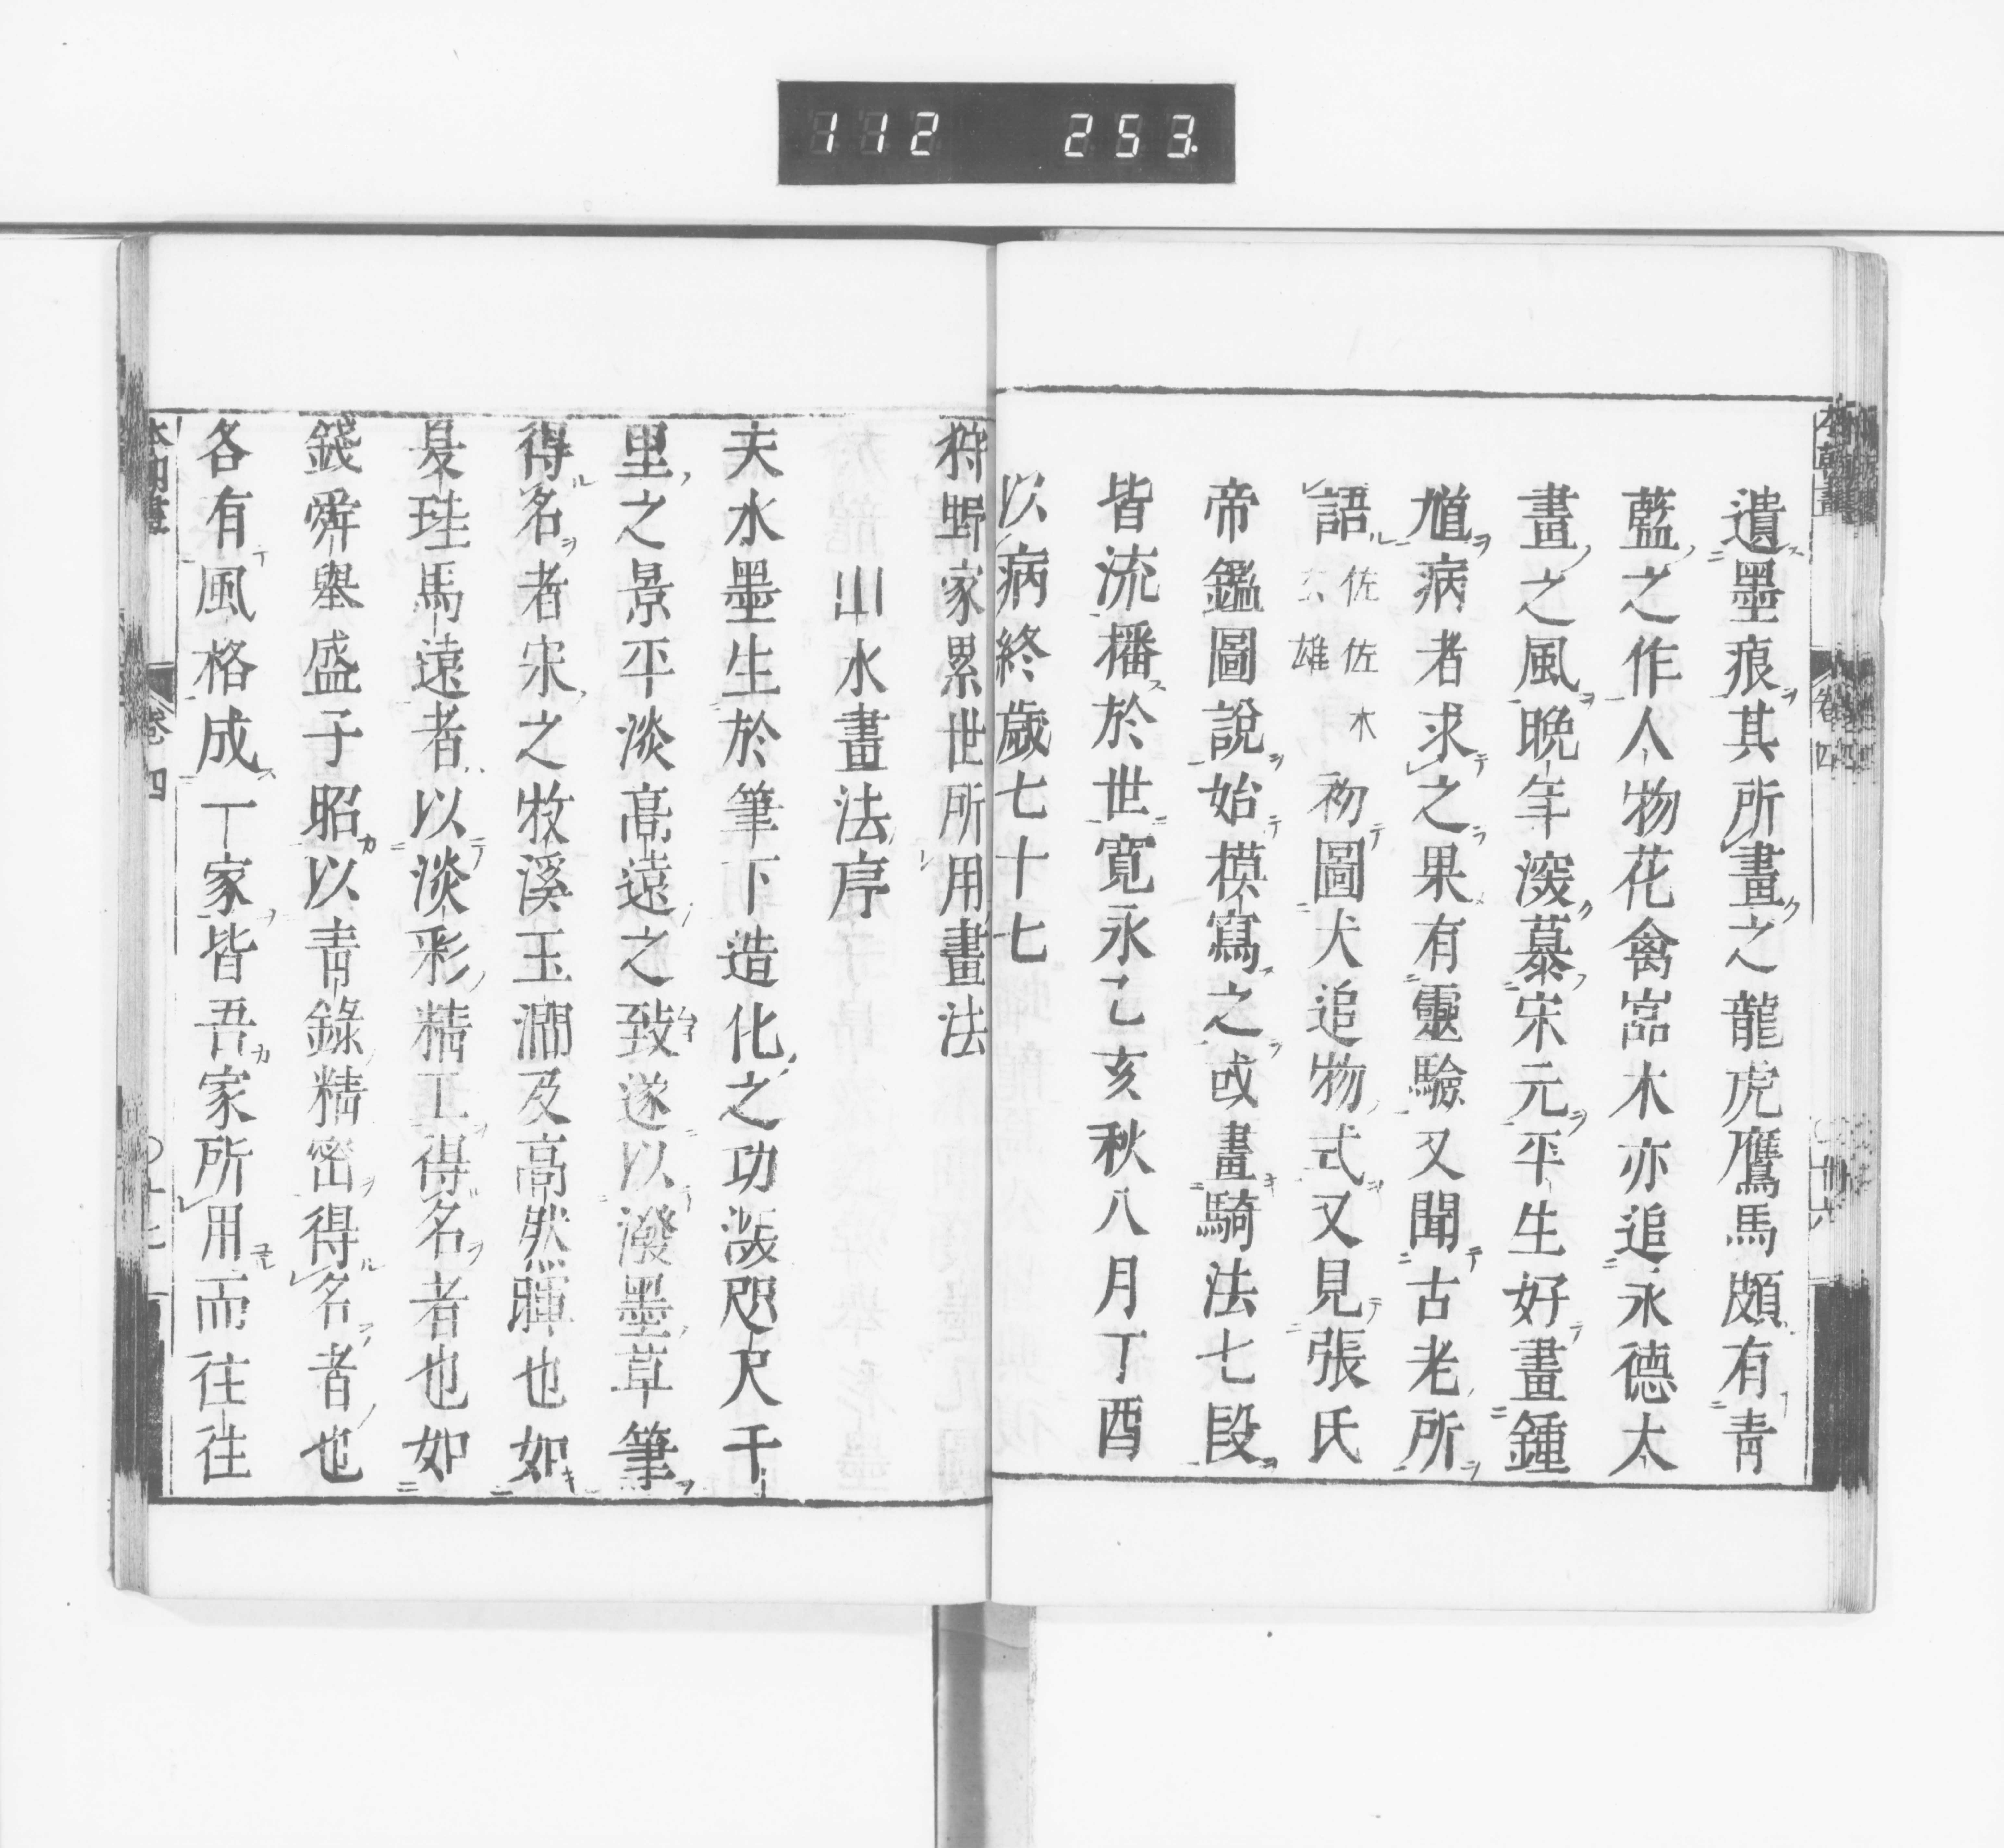 112 253.
遺墨痕其所畫之龍虎鷹馬頗有青
藍之作人物花禽窓木亦追永德太
畫之風晩年深慕宋元平生好畫鍾
馗病者求之果有靈驗又聞古老所
語佐佐木玄雄初圖犬追物式又見張氏
帝鑑圖說始模寫之或畫騎法七段
皆流播於世寬永乙亥秋八月丁酉
以病終歲七十七
狩野家累世所用畫法
山水畫法序
夫水墨生於筆下造化之功凝咫尺千
里之景平淡高遠之致遂以潑墨草筆
得名者宋之牧溪玉澗及高然暉也如
夏珪馬遠者以淡彩精工得名者也如
錢舜舉盛子昭以青錄精密得名者也
各有風格成一家皆吾家所用而往往
卷四